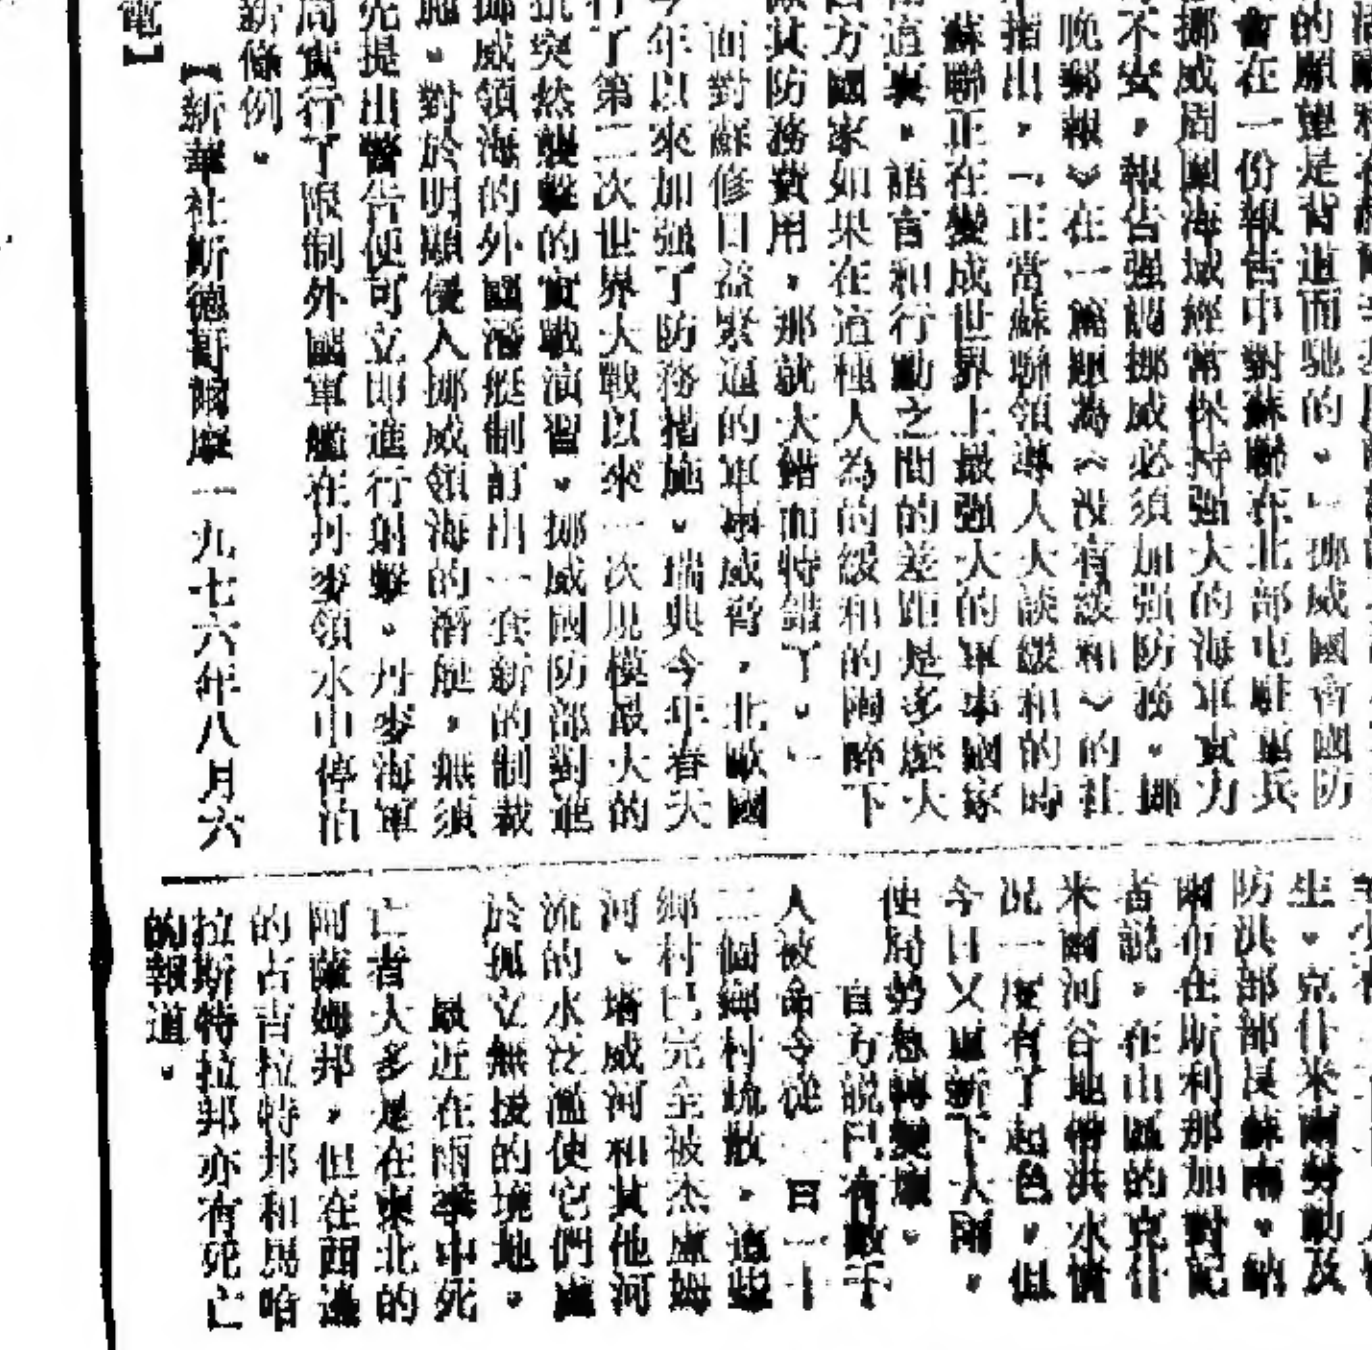 的願望是背道而馳的。」挪威國會國防
會在一份報告中對蘇聯在北部屯駐重兵
挪威周圍海域經常保持强大的海軍實力
不安。報告强調挪威必須加强防務。挪
晚郵報》在一篇題為《没有緩和》的社
指出,「正當蘇聯領導人大談緩和的時
蘇聯正在變成世界上最强大的軍事國家
這裏,語言和行動之間的差距是多麼大
西方國家如果在這種人為的緩和的陶醉下
其防務費用,那就大錯而特錯了。」
面對蘇修日益緊逼的軍事威脅,北歐國
今年以來加强了防務措施。瑞典今年春天
行了第二次世界大戰以來一次規模最大的
抗突然襲擊的實戰演習。挪威國防部對進
挪威領海的外國潛艇制訂出一套新的制裁
施。對於明顯侵入挪威領海的潛艇,無須
先提出警告便可立即進行射擊。丹麥海軍
局實行了限制外國軍艦在丹麥領水中停泊
新條例。
【新華社斯德哥爾摩一九七六年八月六
電】
生。克什米爾勞動及
防洪部部長蘇爾。納
爾布在斯利那加對記
者說,在山區的克什
米爾河谷地帶洪水情
況一度有了起色,但
今日又重新下大雨,
使局勢惡轉變壞。
官方說已有數千
人被命令從一百一十
二個鄉村疏散,這些
鄉村已完全被杰盧姆
河、塔威河和其他河
流的水泛濫使它們處
於孤立無援的境地。
最近在雨季中死
亡者大多是在東北的
阿薩姆邦,但在西邊
的古吉拉特邦和馬哈
拉斯特拉邦亦有死亡
的報道。